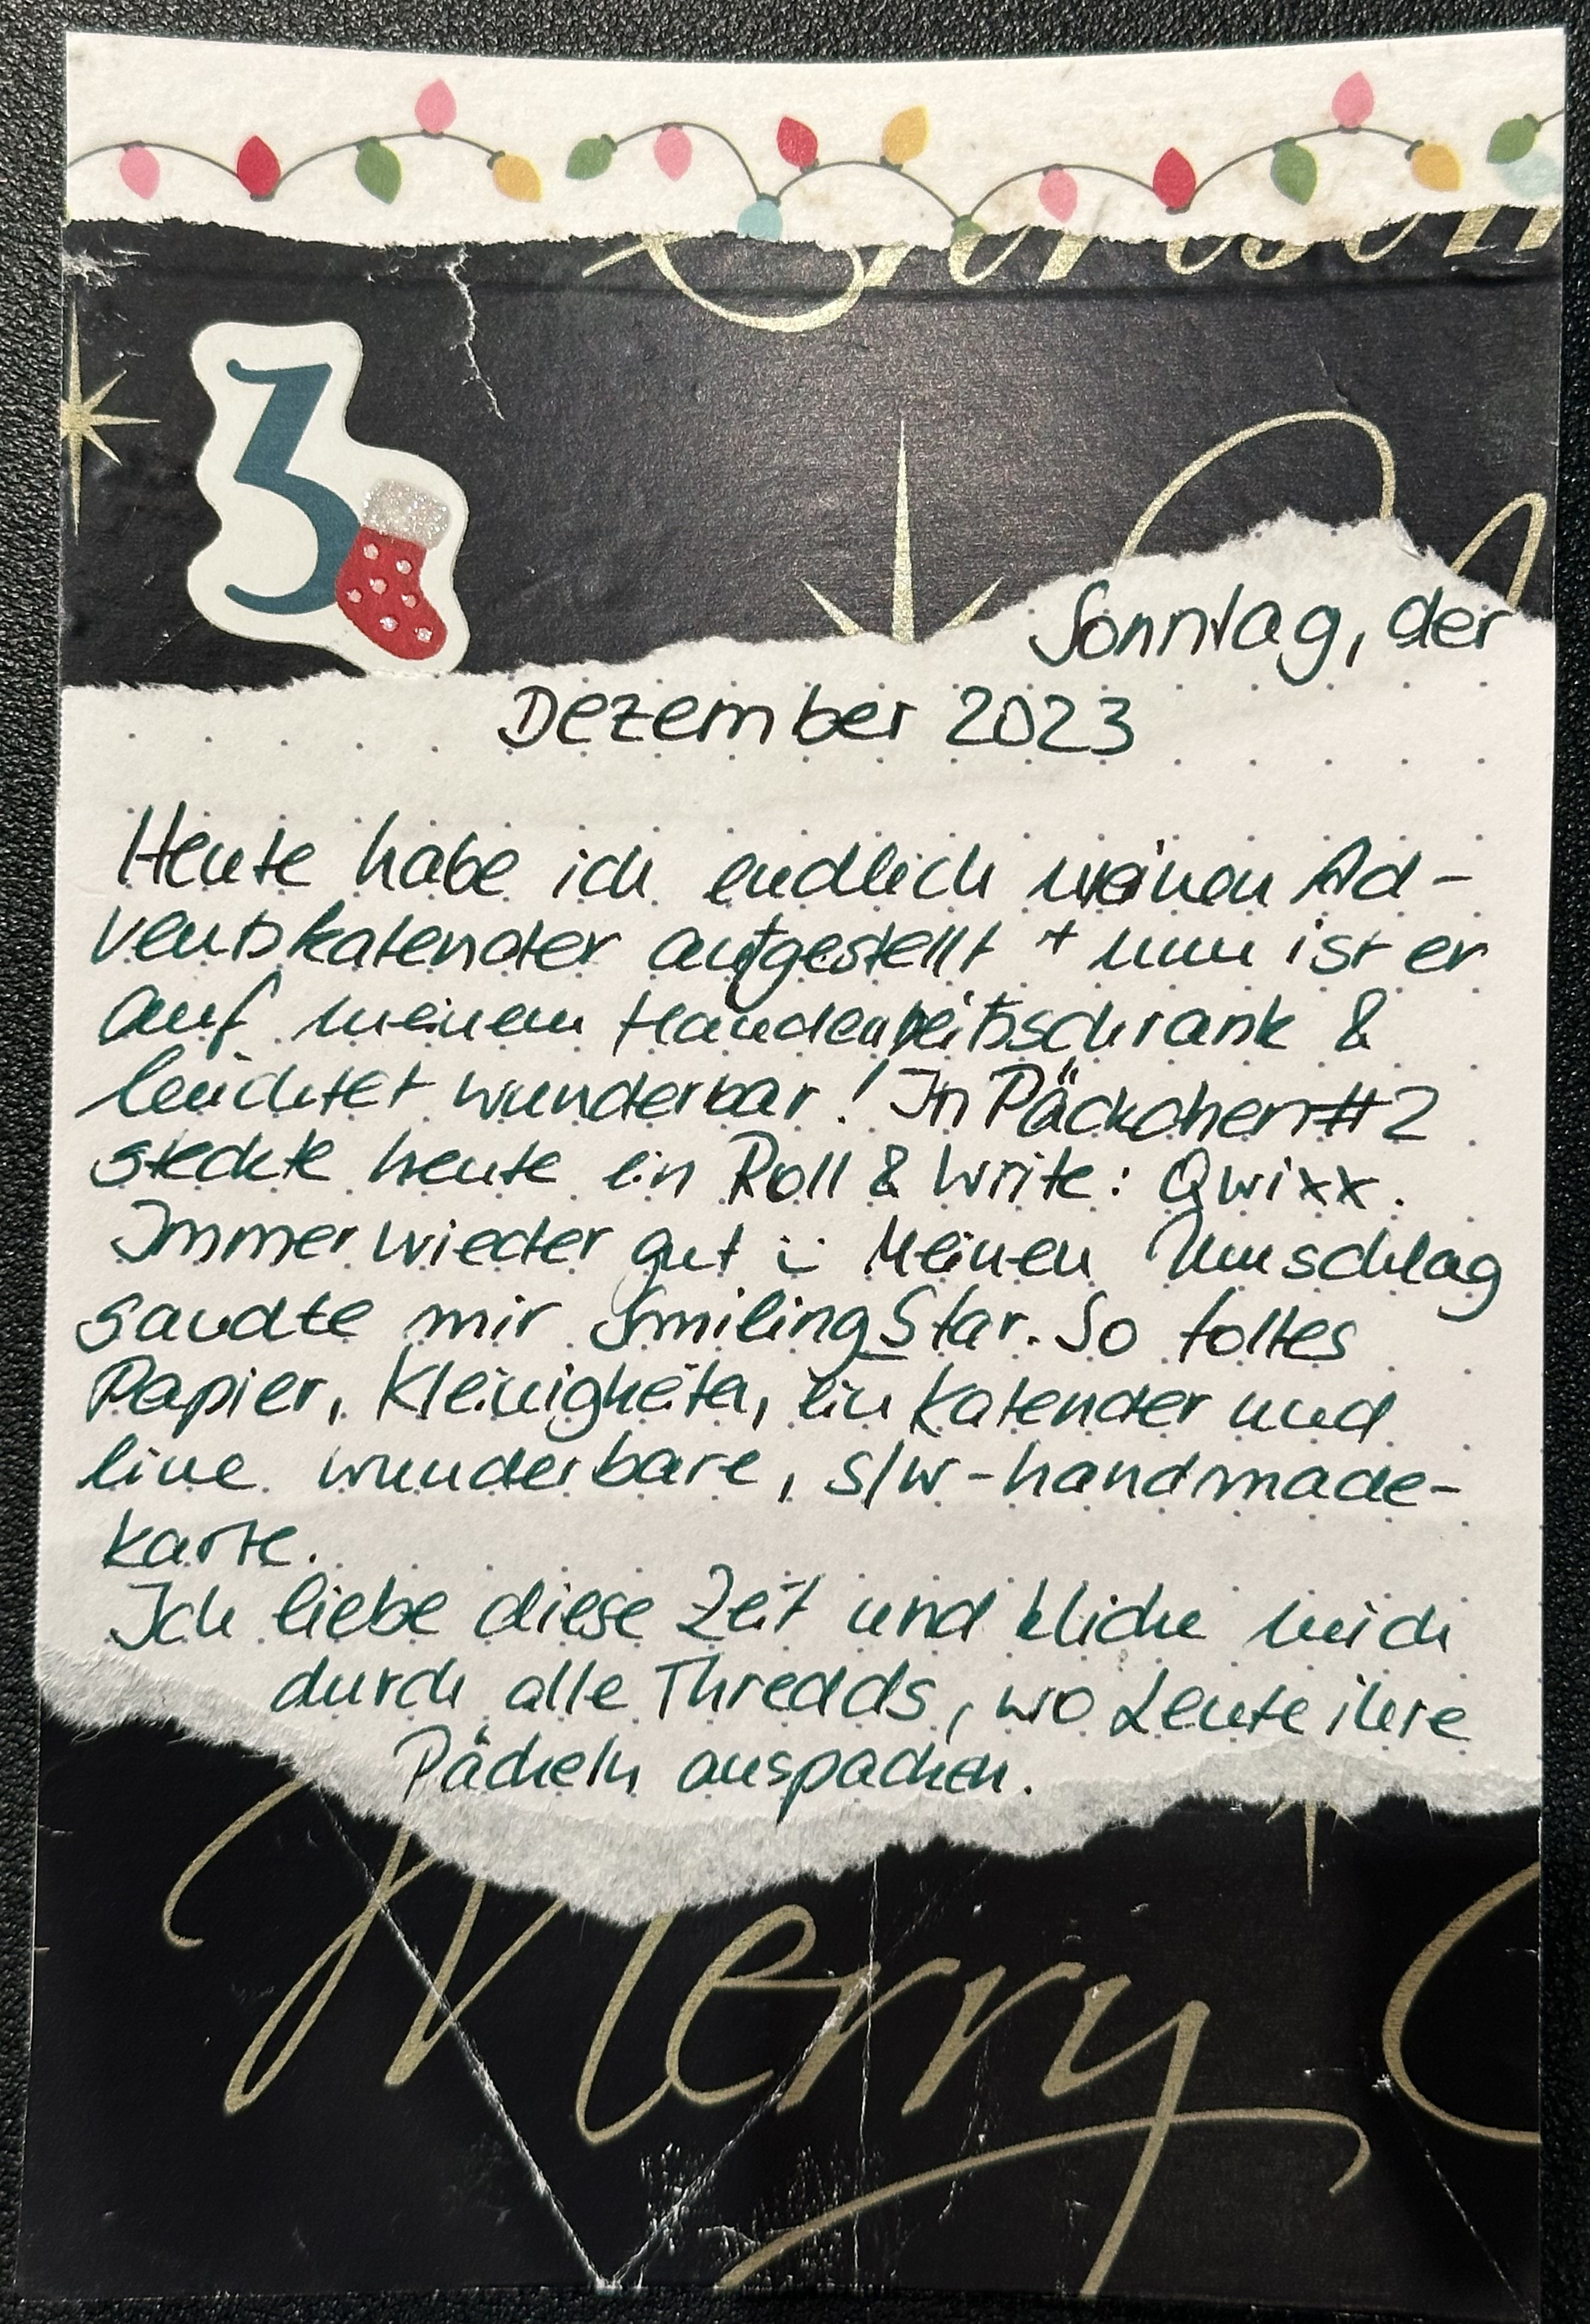 3
Sonntag, der
Dezember 2023
Heute habe ich endlich meinen Ad-
ventskalender aufgestellt + nun ist er
auf meinem Handarbeitsschrank &
leuchtet wunderbar! In Päckchen #2
steckte heute ein Roll & Write: Qwixx.
Immer wieder gut :) Meinen Umschlag
sandte mir Smiling_Star. So tolles
Papier, Kleinigkeiten, ein Kalender und
eine wunderbare, s/w-handmade-
karte.
Ich liebe diese Zeit und klicke mich
durch alle Thredds, wo Leute ihre
Päckeln auspacken.
Merry